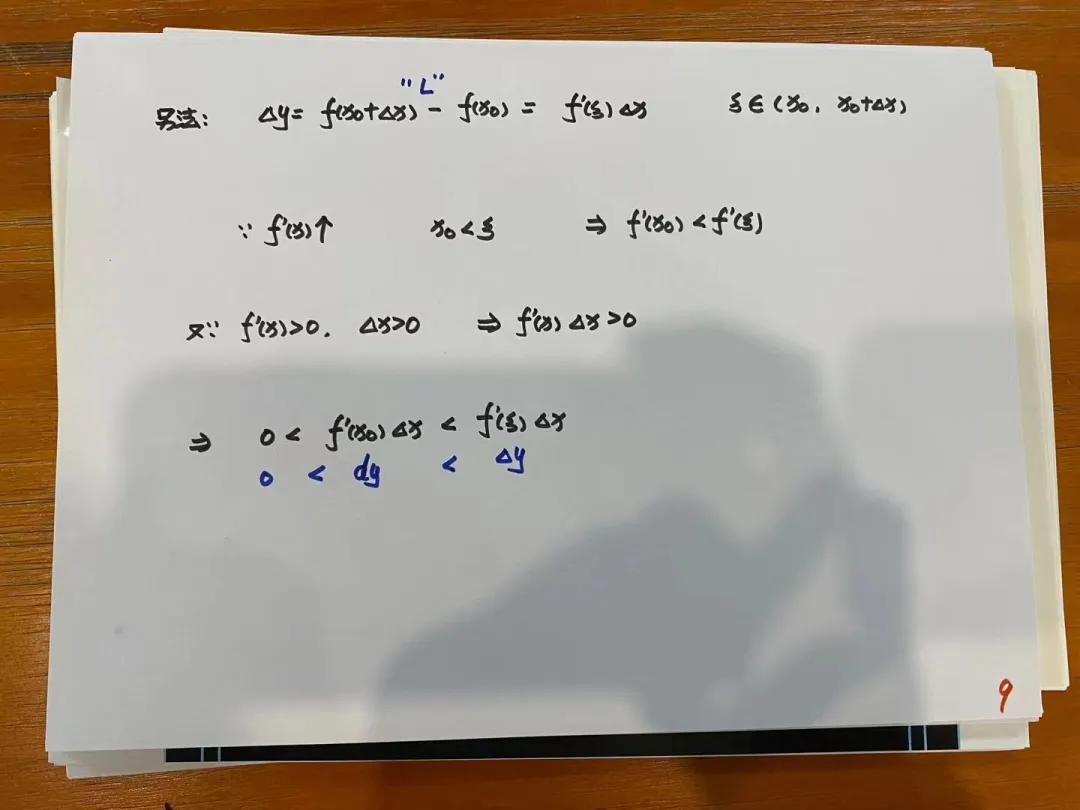 "L"
另法: Δy= f(x₀+Δx) - f(x₀) = f'(ξ)Δx ξ∈(x₀, x₀+Δx)
∵ f'(x)↑ x₀<ξ ⇒ f'(x₀)<f'(ξ)
又∵ f'(x)>0. Δx>0 ⇒ f'(x)Δx>0
⇒ 0< f'(x₀)Δx < f'(ξ)Δx
0 < dy < Δy
9